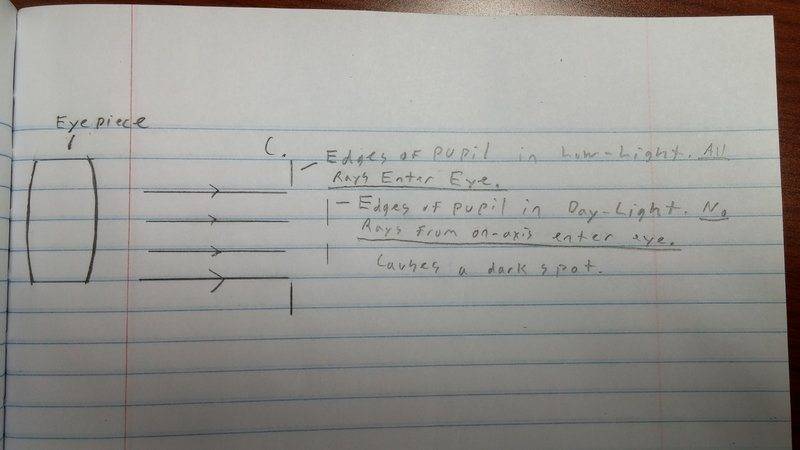 Eyepiece
C.
Edges of pupil in Low-Light. All
Rays Enter Eye.
Edges of pupil in Day-Light. No
Rays from on-axis enter eye.
Causes a dark spot.